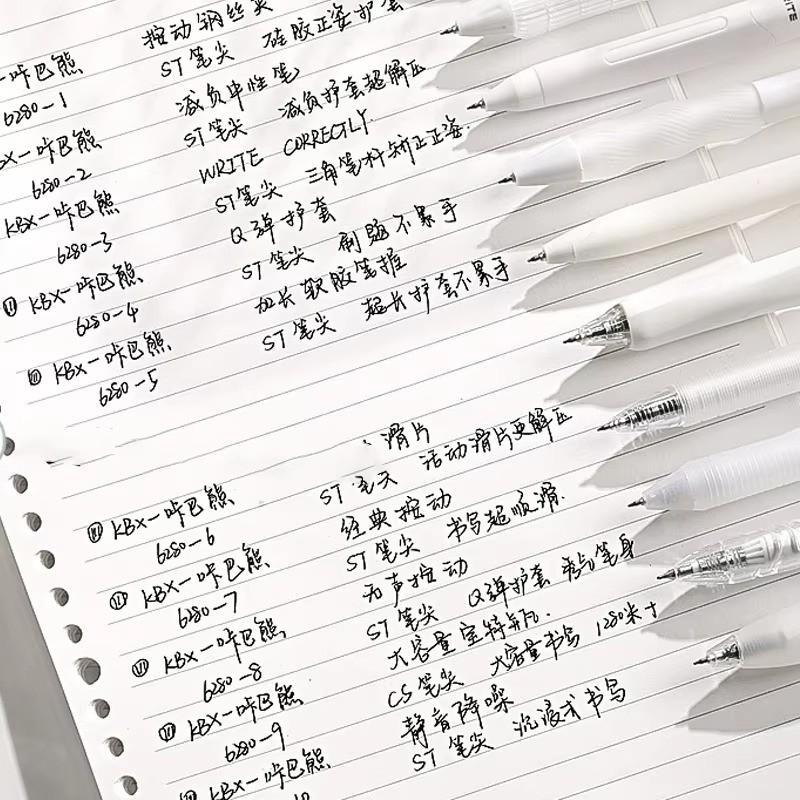 按动钢丝夹
一咔巴熊 ST笔尖 硅胶正姿护套
6280-1 减负中性笔
KBX一咔巴熊 ST笔尖 减负护套超解压
6280-2 WRITE CORRECTLY
KBX一咔巴熊 ST笔尖 三角笔杆矫正正姿
6280-3 Q弹护套
KBX一咔巴熊 ST笔尖 刷题不累手
6280-4 加长软胶笔握
KBX一咔巴熊 ST笔尖 超长护套不累手
6280-5
滑片
KBX一咔巴熊 ST笔尖 活动滑片更解压
6280-6 经典按动
KBX一咔巴熊 ST笔尖 书写超顺滑
6280-7 无声按动
KBX一咔巴熊 ST笔尖 Q弹护套 笔身
6280-8 大容量
KBX一咔巴熊 CS笔尖 大容量书写 1280米+
6280-9 静音降噪
KBX一咔巴熊 ST笔尖 沉浸式书写
10